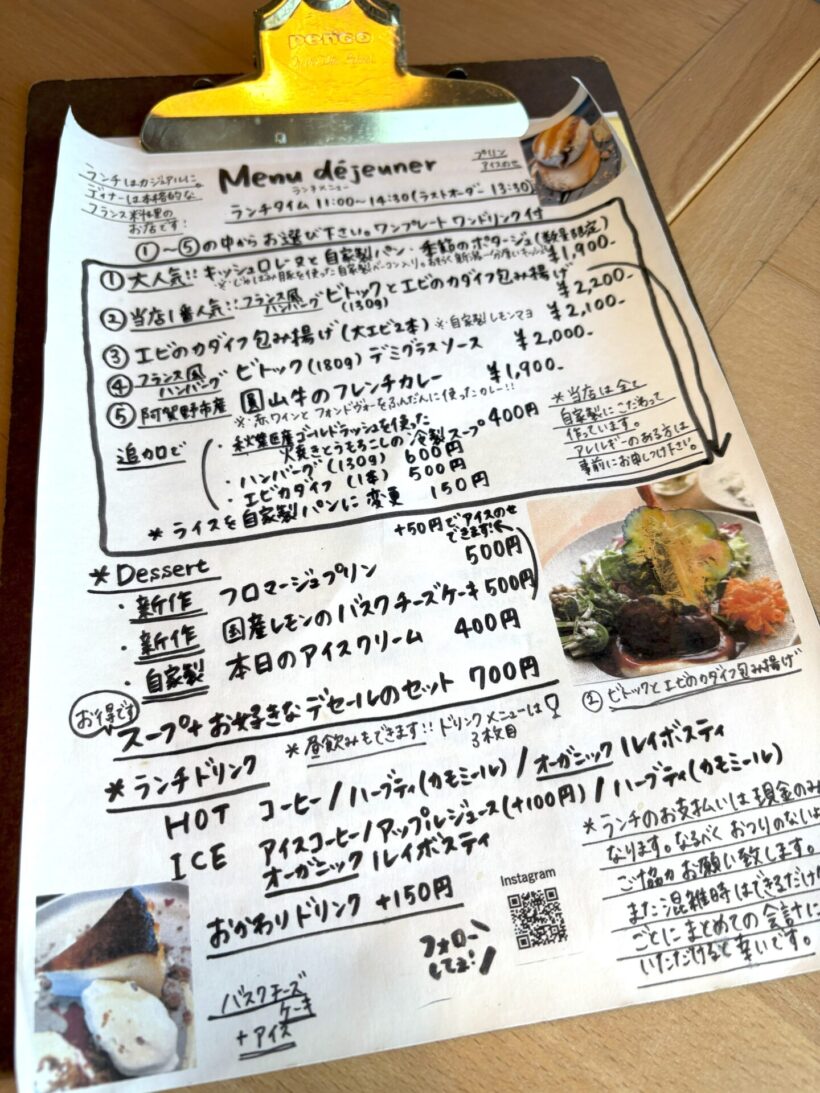 penco
ランチはカジュアルに。
ディナーは本格的な
フランス料理の
お店です!
Menu déjeuner
ランチメニュー
プリン
アイスのせ
ランチタイム 11:00〜14:30(ラストオーダー 13:30)
①〜⑤の中からお選び下さい。ワンプレート ワンドリンク付
① 大人気!! キッシュロレーヌと自家製パン・季節のポタージュ(数量限定)
¥1,900-
② 当店1番人気!! フランス風ハンバーグ ビトックとエビのカダイフ包み揚げ
(130g)
¥2,200-
③ エビのカダイフ包み揚げ(大エビ2本) ※自家製レモンマヨ ¥2,100-
④ フランス風ハンバーグ ビトック(180g) デミグラスソース ¥2,000-
⑤ 阿賀野市産 山牛のフレンチカレー ¥1,900-
※赤ワインとフォンドヴォーをふんだんに使ったカレー!!
追加で
・秋葉区産ゴールドラッシュを使った
焼きとうもろこしの冷製スープ 400円
・ハンバーグ(130g) 600円
・エビカダイフ(1本) 500円
* ライスを自家製パンに変更 150円
*当店は全て
自家製にこだわって
作っています。
アレルギーのある方は
事前にお申しつけ下さい。
* Dessert
+50円でアイスのせ
できます!
・新作 フロマージュプリン 500円
・新作 国産レモンのバスクチーズケーキ 500円
・自家製 本日のアイスクリーム 400円
お得です
スープ+お好きなデセールのセット 700円
② ビトックとエビのカダイフ包み揚げ
*昼飲みもできます!! ドリンクメニューは
3枚目
* ランチドリンク
HOT コーヒー/ハーブティ(カモミール)/オーガニックルイボスティ
ICE アイスコーヒー/アップルジュース(+100円)/ハーブティ(カモミール)
オーガニックルイボスティ
おかわりドリンク +150円
Instagram
フォロー
してネ!
*ランチのお支払いは現金のみ
なります。なるべくおつりのないよ
ご協力お願い致します。
また混雑時はできるだけ
ごとにまとめての会計に
いただけると幸いです。
バスクチーズ
ケーキ
+アイス